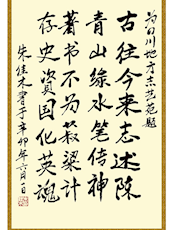 为四川地方志艺苑题
古往今来志述陈
青山绿水笔传神
著书不为菽粱计
存史资国化英魂
朱佳木书于辛卯年六月一日